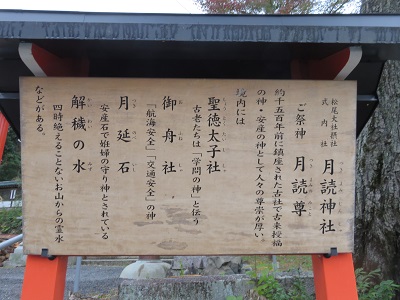 松尾大社摂社
式内社
月読神社
ご祭神 月読尊
約千五百年前に鎮座された古社で古来授福
の神・安産の神として人々の尊崇が厚い。
境内には
聖徳太子社
古老たちは「学問の神」と伝う
御舟社
「航海安全」「交通安全」の神
月延石
安産石で姙婦の守り神とされている
解穢の水
四時絶えることないお山からの霊水
などがある。